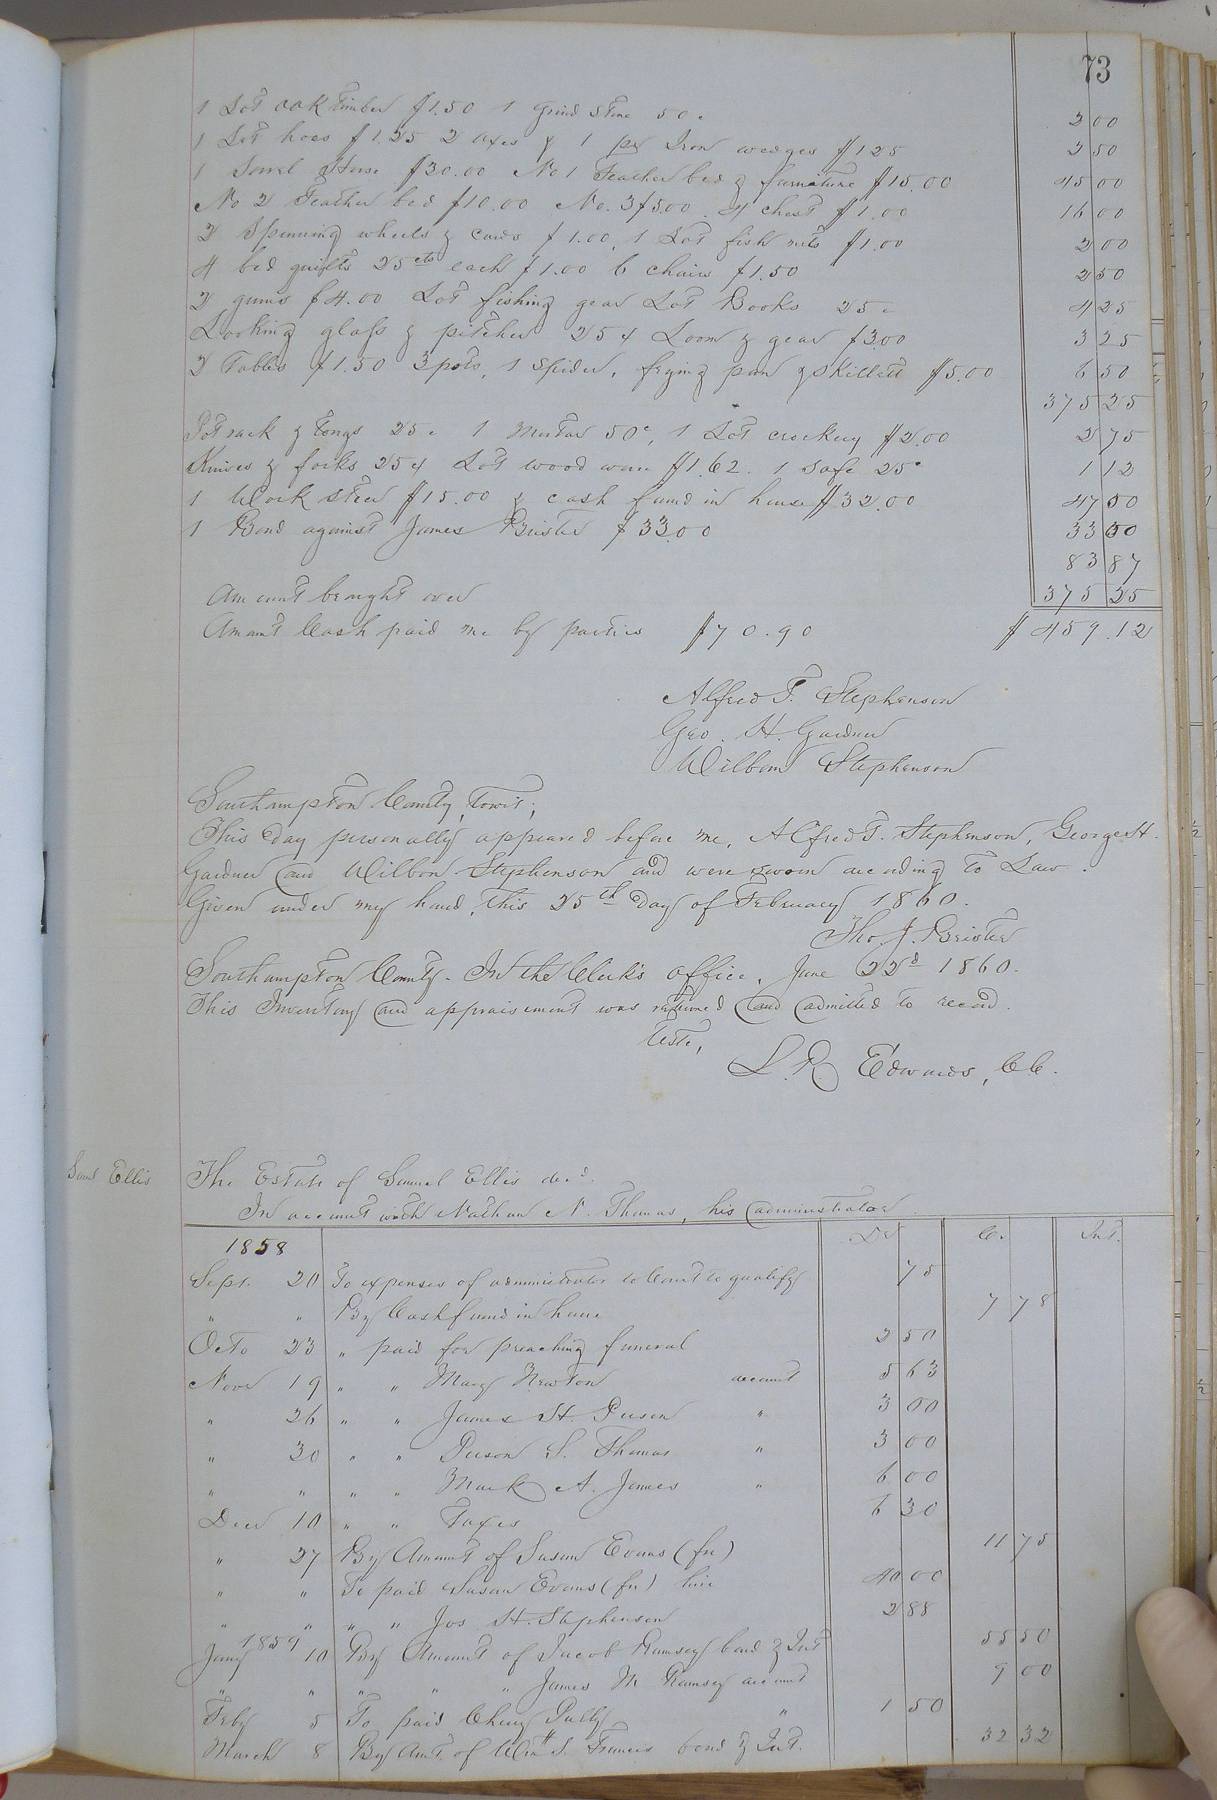 73
1 Lot oak timber $1.50 1 grind stone 50c 2 00
1 Lot hoes $1.25 2 axes & 1 pr Iron wedges $1 25 2 50
1 Sorrel Horse $30.00 No 1 Feather bed & furniture $15.00 45 00
No 2 Feather bed $10.00 No. 3 $5.00 . 4 chest $1.00 16 00
2 Spinning wheels & cards $1.00, 1 Lot fish nets $1.00 2 00
4 bed quilts 25cts each $1.00 6 chairs $1.50 2 50
2 guns $4.00 Lot fishing gear Lot Books 25c 4 25
Looking glass & pitcher 25c Loom & gear $3.00 3 25
2 Tables $1.50 3 pots, 1 Spider, frying pan & skillett $5.00 6 50
375 25
Pot rack & tongs 25c 1 Mortar 50c, 1 Lot crockery $2.00 2 75
Knives & forks 25c Lot wood ware $1.62. 1 Safe 25c 1 12
1 Work steer $15.00 & cash found in house $32.00 47 00
1 Bond against James Brister $33.00 33 00
83 87
Amount brought over 375 25
Amount Cash paid me by parties $70.90 $459.12
Alfred T. Stephenson
Geo. H. Gardner
Wilbon Stephenson
Southampton County, towit;
This day personally appeared before me, Alfred T. Stephenson, George H.
Gardner and Wilbon Stephenson and were sworn according to Law.
Given under my hand, this 25th day of February 1860.
Tho. J. Brister
Southampton County - In the Clerk's office, June 22d 1860.
This Inventory and appraisement was returned and admitted to record.
Teste,
L. R. Edwards, CC.
Saml Ellis
The Estate of Samuel Ellis decd.
In account with Nathan N. Thomas, his administrator
Dr Cr. Int.
1858
Sept. 20 To expenses of administrator to Court to qualify 75
" " By Cash found in house 7 78
Octo 23 " paid for preaching funeral 2 50
Nove 19 " " Mary Newton account 5 63
" 26 " " James H. Person " 3 00
" 30 " " Person S. Thomas " 3 00
" " " " Mark A. James " 6 00
Decr 10 " " Taxes 6 30
" 27 By Amount of Susan Evans (fn) 11 75
" " To paid Susan Evans (fn) hire 40 00
" " " " Jos H. Stephenson 2 88
1859
Jany 10 By Amount of Jacob Ramsey bond & Int 55 50
" " " " " James M Ramsey account 9 00
Feby 5 To paid Pully " 1 50
March 8 By Amt. of Wm S. Francis bond & Int. 32 32